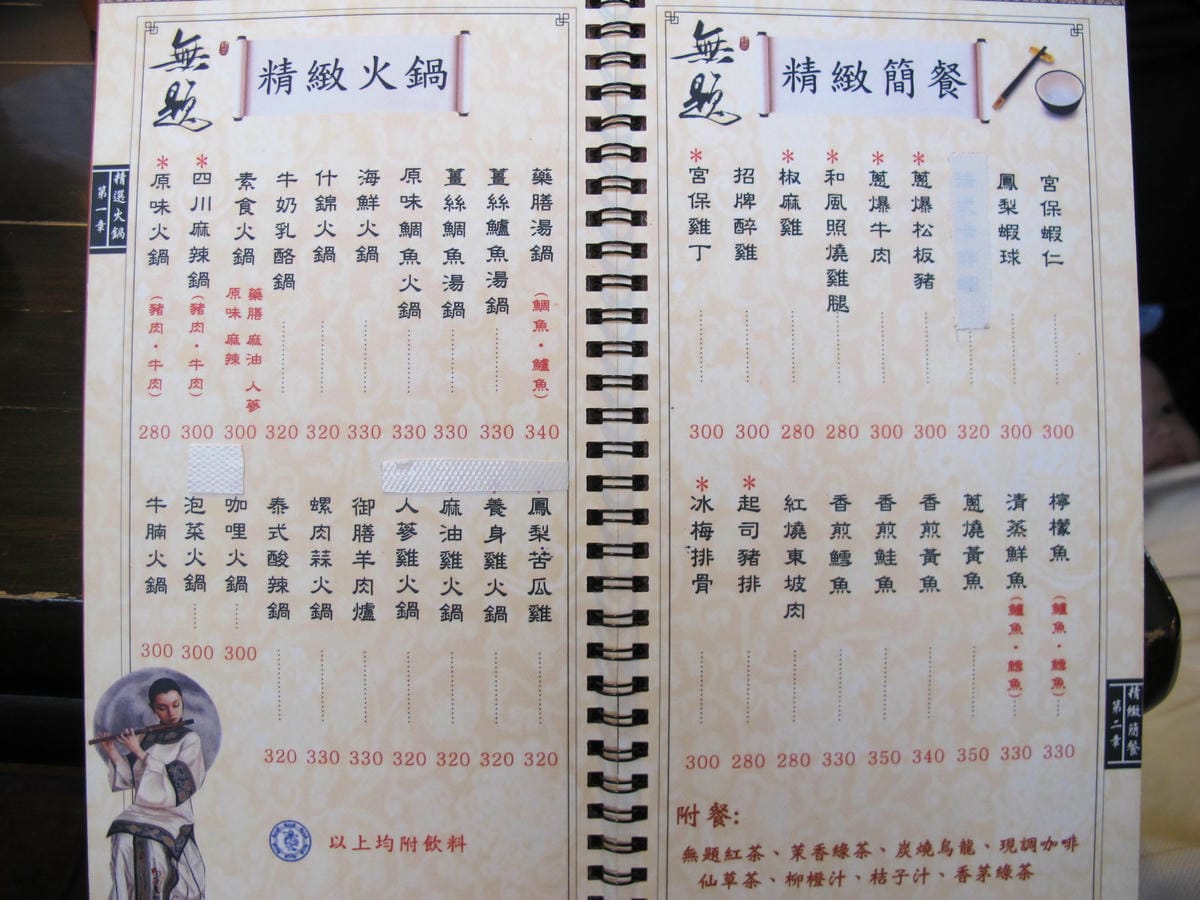 無題
精緻火鍋
精選火鍋
第一章
藥膳湯鍋(鯛魚・鱸魚) 340
薑絲鱸魚湯鍋 330
薑絲鯛魚湯鍋 330
原味鯛魚火鍋 330
海鮮火鍋 330
什錦火鍋 320
牛奶乳酪鍋 320
素食火鍋 300
藥膳 麻油 人蔘
原味 麻辣
*四川麻辣鍋(豬肉・牛肉) 300
*原味火鍋(豬肉・牛肉) 280
鳳梨苦瓜雞 320
養身雞火鍋 320
麻油雞火鍋 320
人蔘雞火鍋 320
御膳羊肉爐 330
螺肉蒜火鍋 330
泰式酸辣鍋 320
咖哩火鍋 300
泡菜火鍋 300
牛腩火鍋 300
以上均附飲料
無題
精緻簡餐
宮保蝦仁 300
鳳梨蝦球 300
320
*蔥爆松板豬 300
*蔥爆牛肉 300
*和風照燒雞腿 280
*椒麻雞 280
招牌醉雞 300
*宮保雞丁 300
檸檬魚(鱸魚・鱈魚) 330
清蒸鮮魚(鱸魚・鱈魚) 330
蔥燒黃魚 350
香煎黃魚 340
香煎鮭魚 350
香煎鱈魚 330
紅燒東坡肉 280
*起司豬排 280
*冰梅排骨 300
精緻簡餐
第二章
附餐:
無題紅茶、茉香綠茶、炭燒烏龍、現調咖啡
仙草茶、柳橙汁、桔子汁、香茅綠茶